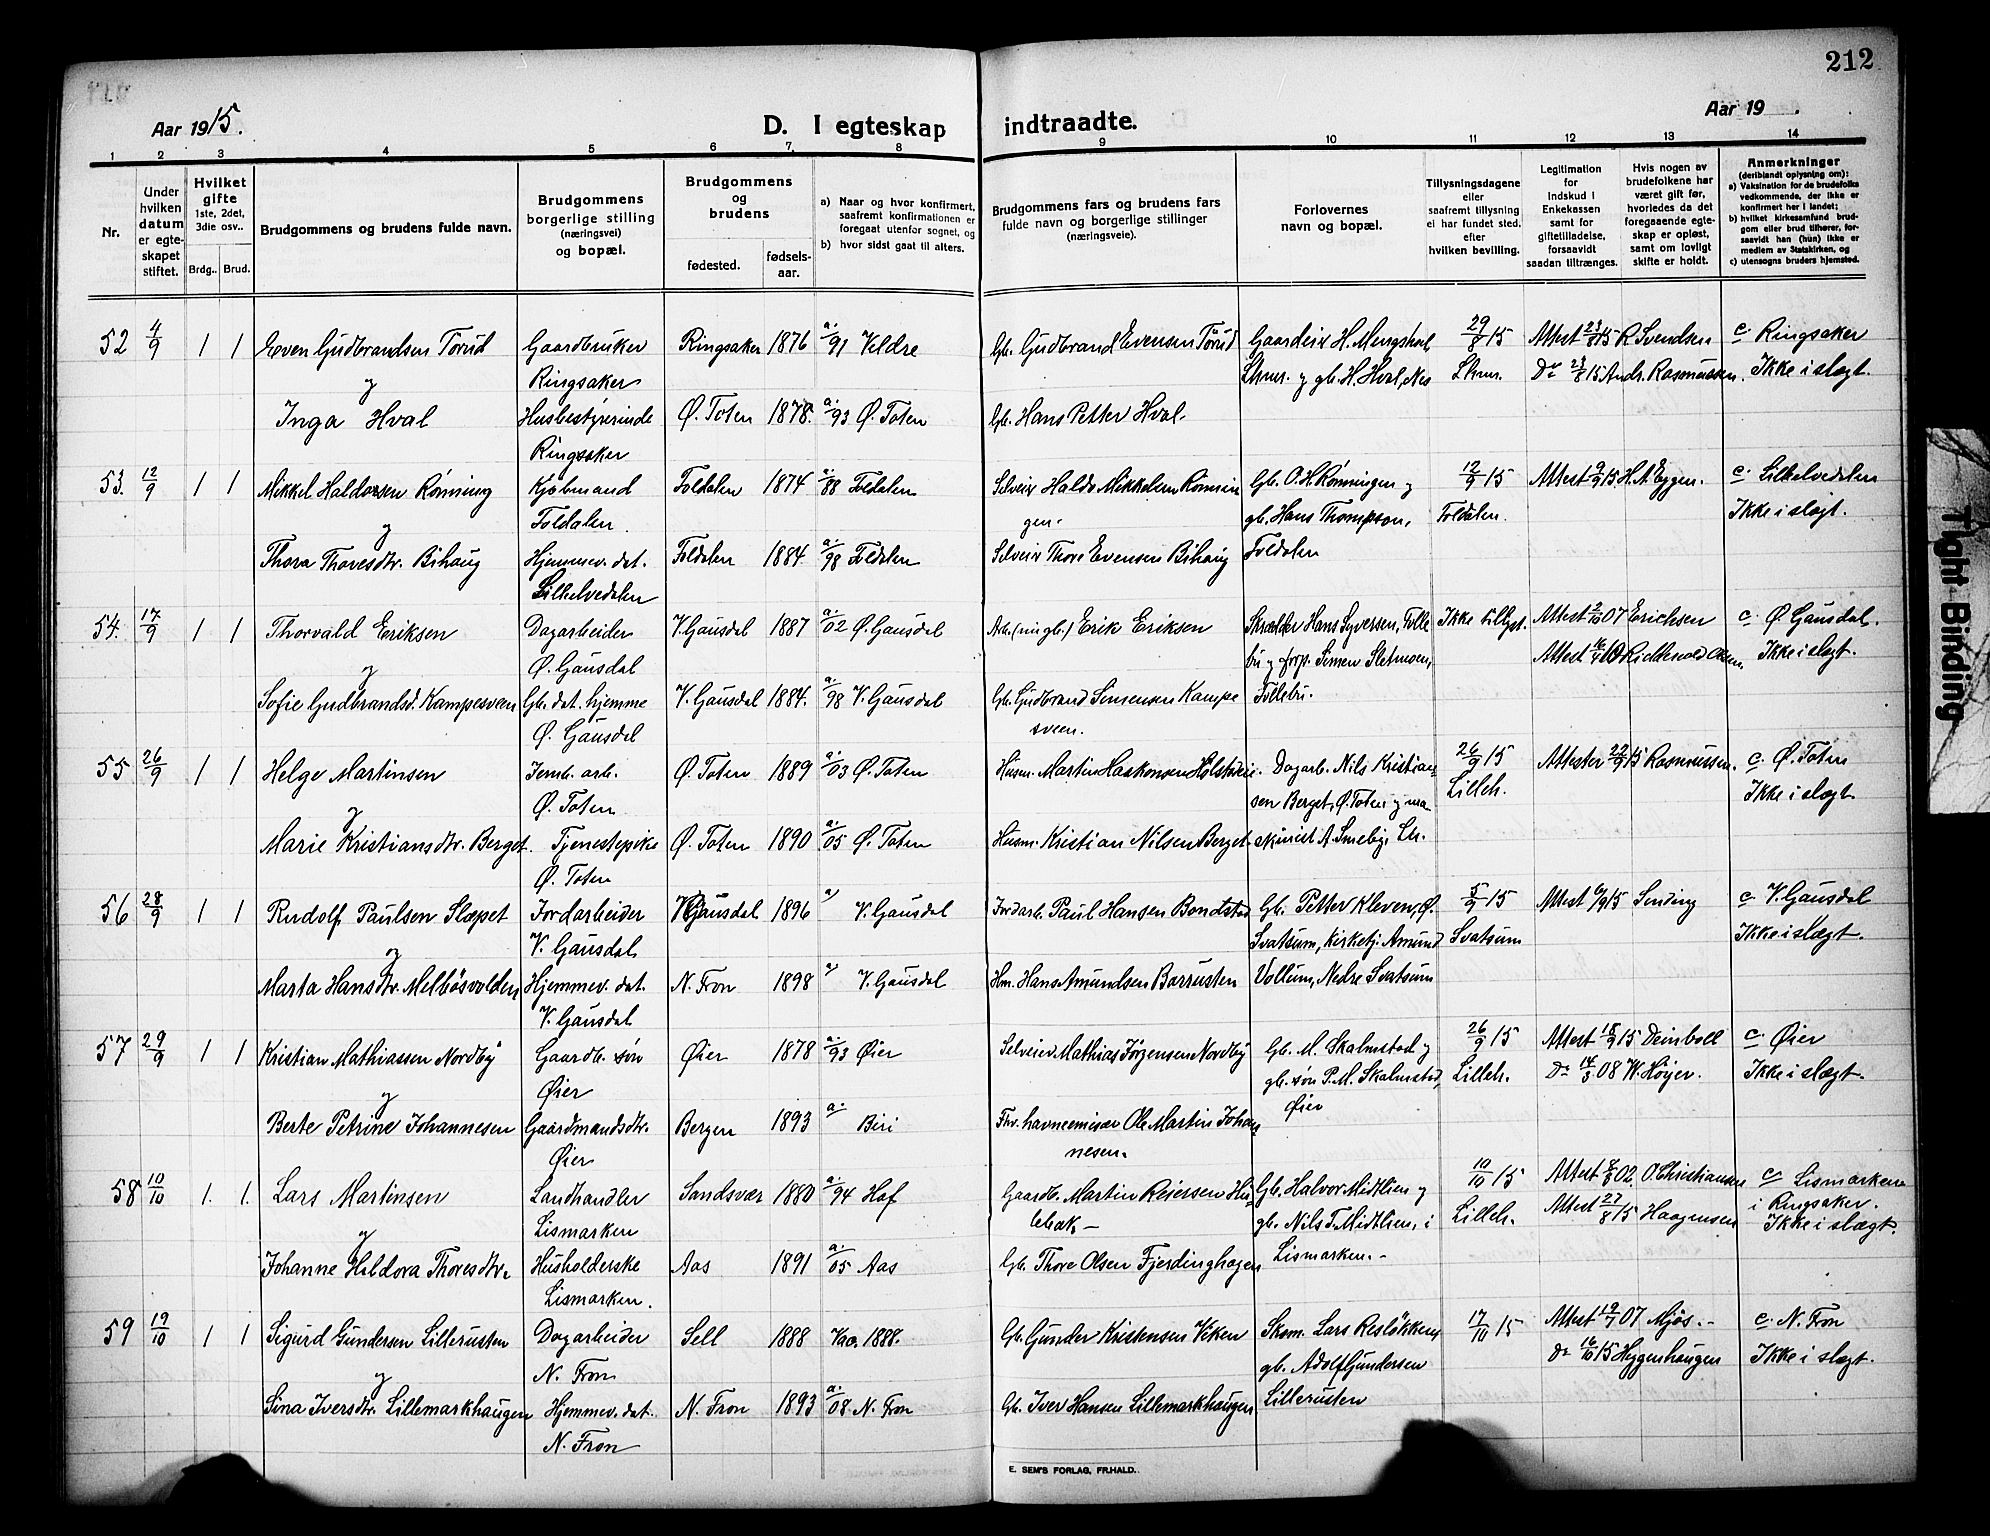 212
Aar 1915.
D. I egteskap indtraadte.
Aar 19 .
1 2 3 4 5 6 7. 8 9 10 11 12 13 14
Nr.
Under hvilken datum er egteskapet stiftet.
Hvilket gifte 1ste, 2det, 3die osv..
Brdg.. Brud.
Brudgommens og brudens fulde navn.
Brudgommens borgerlige stilling (næringsvei) og bopæl.
Brudgommens og brudens
fødested. fødselsaar.
a) Naar og hvor konfirmert, saafremt konfirmationen er foregaat utenfor sognet, og
b) hvor sidst gaat til alters.
Brudgommens fars og brudens fars fulde navn og borgerlige stillinger (næringsveie).
Forlovernes navn og bopæl.
Tillysningsdagene eller saafremt tillysning ei har fundet sted. efter hvilken bevilling.
Legitimation for Indskud i Enkekassen samt for giftetilladelse, forsaavidt saadan tiltrænges.
Hvis nogen av brudefolkene har været gift før, hvorledes da det foregaaende egteskap er opløst, samt om lovligt skifte er holdt.
Anmerkninger (deriblandt oplysning om):
a) Vaksination for de brudefolks vedkommende, der ikke er konfirmert her i landet;
b) hvilket kirkesamfund brudgom eller brud tilhører, forsaavidt han (hun) ikke er medlem av Statskirken, og
c) utensogns bruders hjemsted.
52 4/9 1 1 Even Gudbrandsen Tørud Gaardbruker Ringsaker 1876 a. /91 Veldre Gb. Gudbrand Evensen Tørud Gaardeier H. Mengshoel 29/8 15 Attest 23/8 15 R Svendsen c Ringsaker
y Ringsaker Lhmr. y gb. H. Hval, Nes Lhmr. Do 23/8 15 Andr. Rasmussen. Ikke i slægt.
Inga Hval Husbestyrerinde Ø. Toten 1878. a. /93 Ø. Toten Gb. Hans Petter Hval.
Ringsaker
53. 12/9 1 1 Mikkel Haldorsen Rønning Kjøbmand Foldalen 1874 a. /88 Foldalen Selveier Haldo Mikkelsen Rønnin Gb. O. H. Rønningen y 12/9 15 Attest 9/9 15 H. A. Eggen. c. Lilleelvedalen
y Foldalen gen. gb. Hans Thompson, Foldalen. Ikke i slægt.
Thora Thoresdtr. Bihaug Hjemmev. dat. Foldalen 1884. a. /98 Foldalen Selveier Thore Evensen Bihaug Foldalen
Lilleelvedalen
54. 17/9 1 1 Thorvald Eriksen Dagarbeider V. Gausdal 1887 a. /02 Ø. Gausdal Arb. (nu gb.) Erik Eriksen Skrædder Hans Syversen, Folle Ikke tillyst. Attest 2/10 07 Erichsen c Ø. Gausdal.
y Ø. Gausdal bu y forp. Simen Sletmoen, Ikke i slægt.
Sofie Gudbrandsd. Kampesveen Gb. dat. hjemme V. Gausdal 1884. a. /98 V. Gausdal Gb. Gudbrand Simensen Kampe Follebu.
Ø. Gausdal sveen.
55 26/9 1 1 Helge Martinsen Jernb. arb. Ø. Toten 1889 a. /03 Ø. Toten Husm. Martin Haakonsen Dagarb. Nils Kristian- 26/9 15 Attester 22/9 15 Rasmussen. c. Ø. Toten
y Ø. Toten sen Berget, Ø. Toten y ma Lilleh. Ikke i slægt.
Marie Kristiansdtr. Berget. Tjenestepike Ø. Toten 1890 a. /05 Ø. Toten Husm. Kristian Nilsen Berget. skinist A. Smeby, Lh.
Ø. Toten
56 28/9 1 1 Rudolf Paulsen Slæpet Jordarbeider V. Gausdal 1896 a) V. Gausdal Jordarb. Paul Hansen Bondstad Gb. Petter Kleven, Ø. 5/9 15 Attest 6/9 15 Sinding c. V. Gausdal
y V. Gausdal Svatsum, Kirketj. Amund Svatsum Ikke i slægt.
Marta Hansdtr. Melbösvolden Hjemmev. dat. N. Fron 1898 a) V. Gausdal Hm. Hans Amundsen Barrusten Vollum, Nedre Svatsum
V. Gausdal
57 29/9 1 1 Kristian Mathiassen Nordby Gaardb. søn Øier 1878 a. /93 Øier Selveier Mathias Jørgensen Nordby Gb. M. Skalmstad y 26/9 15 Attest 18/9 15 Deinboll c. Øier
y Øier gb. søn P. M. Skalmstad, Lilleh. Do 14/3 08 W. Höyer. Ikke i slægt.
Berte Petrine Johannesen Gaardmandsdtr. Bergen 1893 a. Biri Fhv. havneemissær Ole Martin Johan- Øier
Øier nesen.
58 10/10 1. 1. Lars Martinsen Landhandler Sandsvær 1880 a. /94 Hof Gaardb. Martin Reiersen Hu- Gb. Halvor Midtlien y 10/10 15 Attest 8/8 02. O. Christiansen c Lismarken
y Lismarken lebak gb. Nils T. Midtlien, i Lilleh. Attest 27/8 15 Haagensen i Ringsaker. Ikke i slægt.
Johanne Haldora Thoresdtr. Husholderske Aas 1891 a. /05 Aas Gb. Thore Olsen Fjerdinghagen Lismarken.
Lismarken.
59 19/10 1 1 Sigurd Gundersen Lillerusten Dagarbeider Sell 1888 Vac. 1888. Gb. Gunder Kristensen Veken Skom. Lars Resløkken 17/10 15 Attest 19/7 07 Mjøs. c. N. Fron
y N. Fron gb. Adolf Gundersen Do 16/10 15 Heggenhaugen Ikke i slægt.
Sina Iversdtr. Lillemarkhaugen Hjemmev. dat. N. Fron 1893 a. /08 N. Fron Gb. Iver Hansen Lillemarkhaugen Lillerusten
N. Fron
E. SEM'S FORLAG, FR.HALD.
Tight Binding